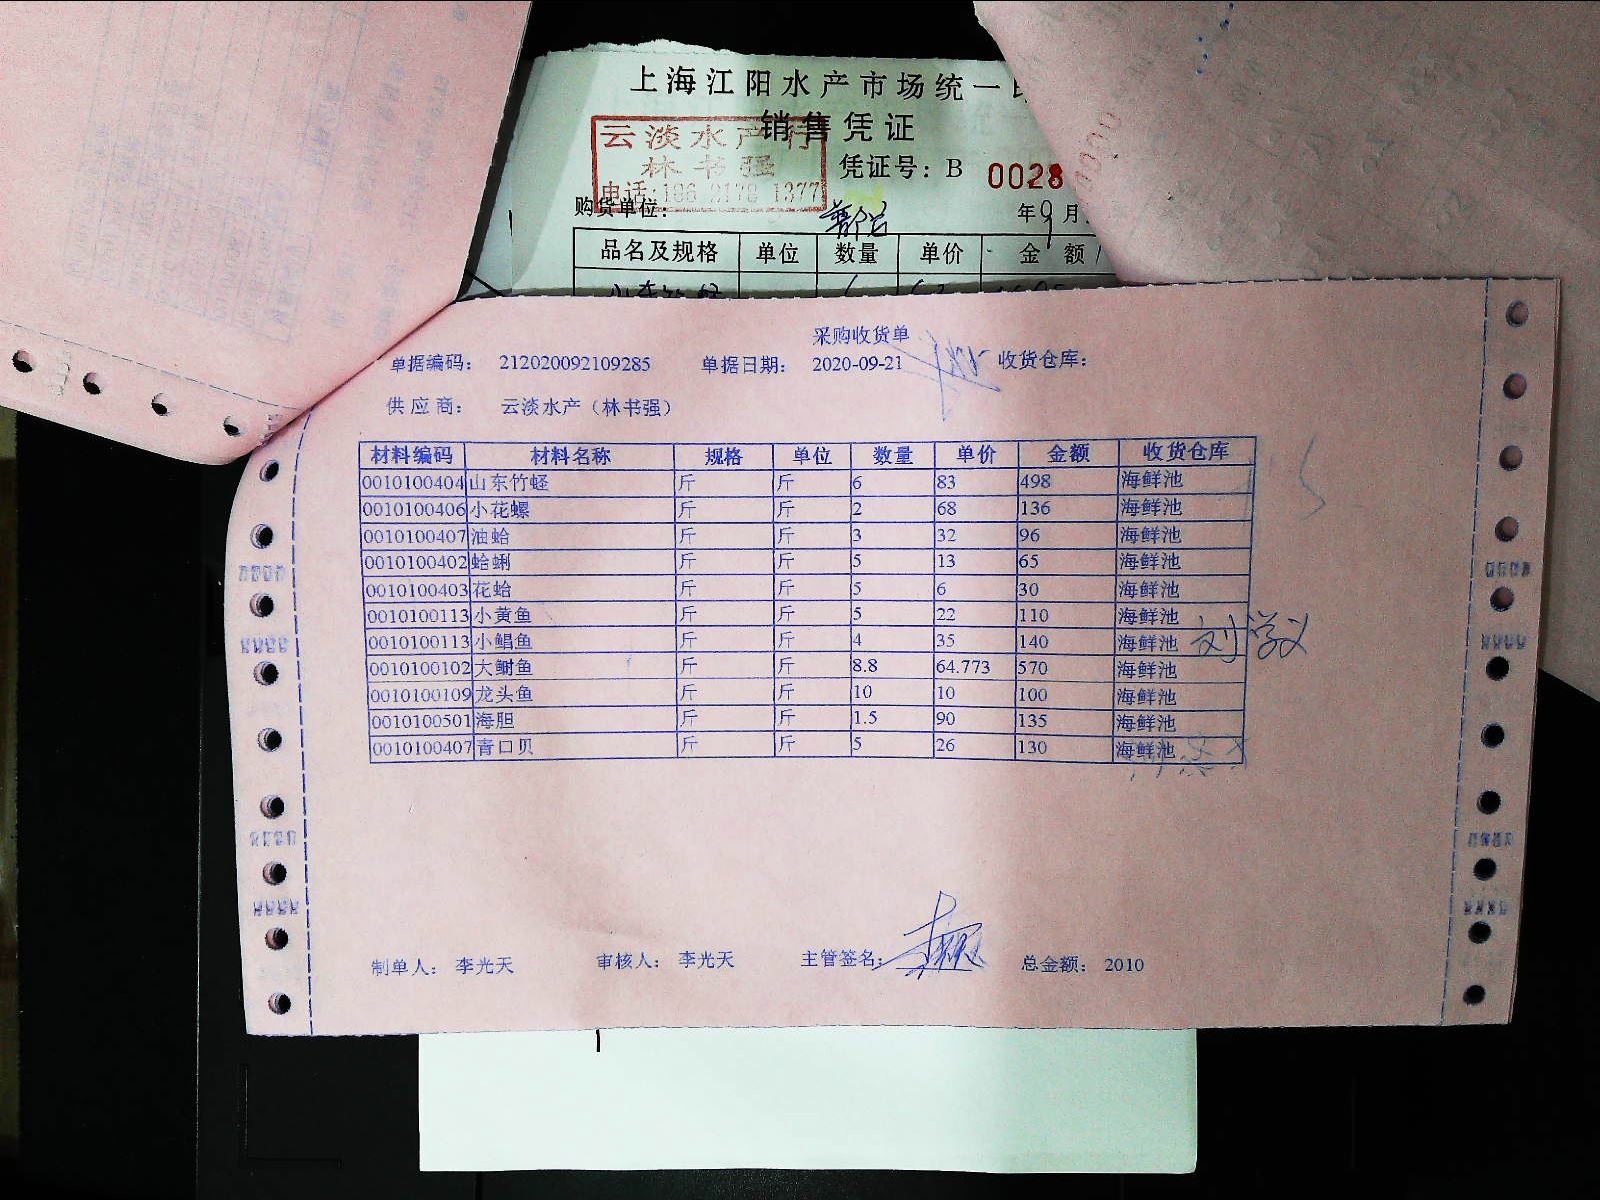 上海江阳水产市场统一
销售凭证
云淡水产行
林书强
凭证号：B 0028
电话:186 2178 1377
购货单位：
年9月
品名及规格 单位 数量 单价 金 额
采购收货单
单据编码： 212020092109285 单据日期： 2020-09-21 收货仓库：
供应商： 云淡水产（林书强）
材料编码 材料名称 规格 单位 数量 单价 金额 收货仓库
0010100404 山东竹蛏 斤 斤 6 83 498 海鲜池
0010100406 小花螺 斤 斤 2 68 136 海鲜池
0010100407 油蛤 斤 斤 3 32 96 海鲜池
0010100402 蛤蜊 斤 斤 5 13 65 海鲜池
0010100403 花蛤 斤 斤 5 6 30 海鲜池
0010100113 小黄鱼 斤 斤 5 22 110 海鲜池
0010100113 小鲳鱼 斤 斤 4 35 140 海鲜池 刘学义
0010100102 大鲥鱼 斤 斤 8.8 64.773 570 海鲜池
0010100109 龙头鱼 斤 斤 10 10 100 海鲜池
0010100501 海胆 斤 斤 1.5 90 135 海鲜池
0010100407 青口贝 斤 斤 5 26 130 海鲜池
制单人： 李光天 审核人： 李光天 主管签名： 总金额： 2010